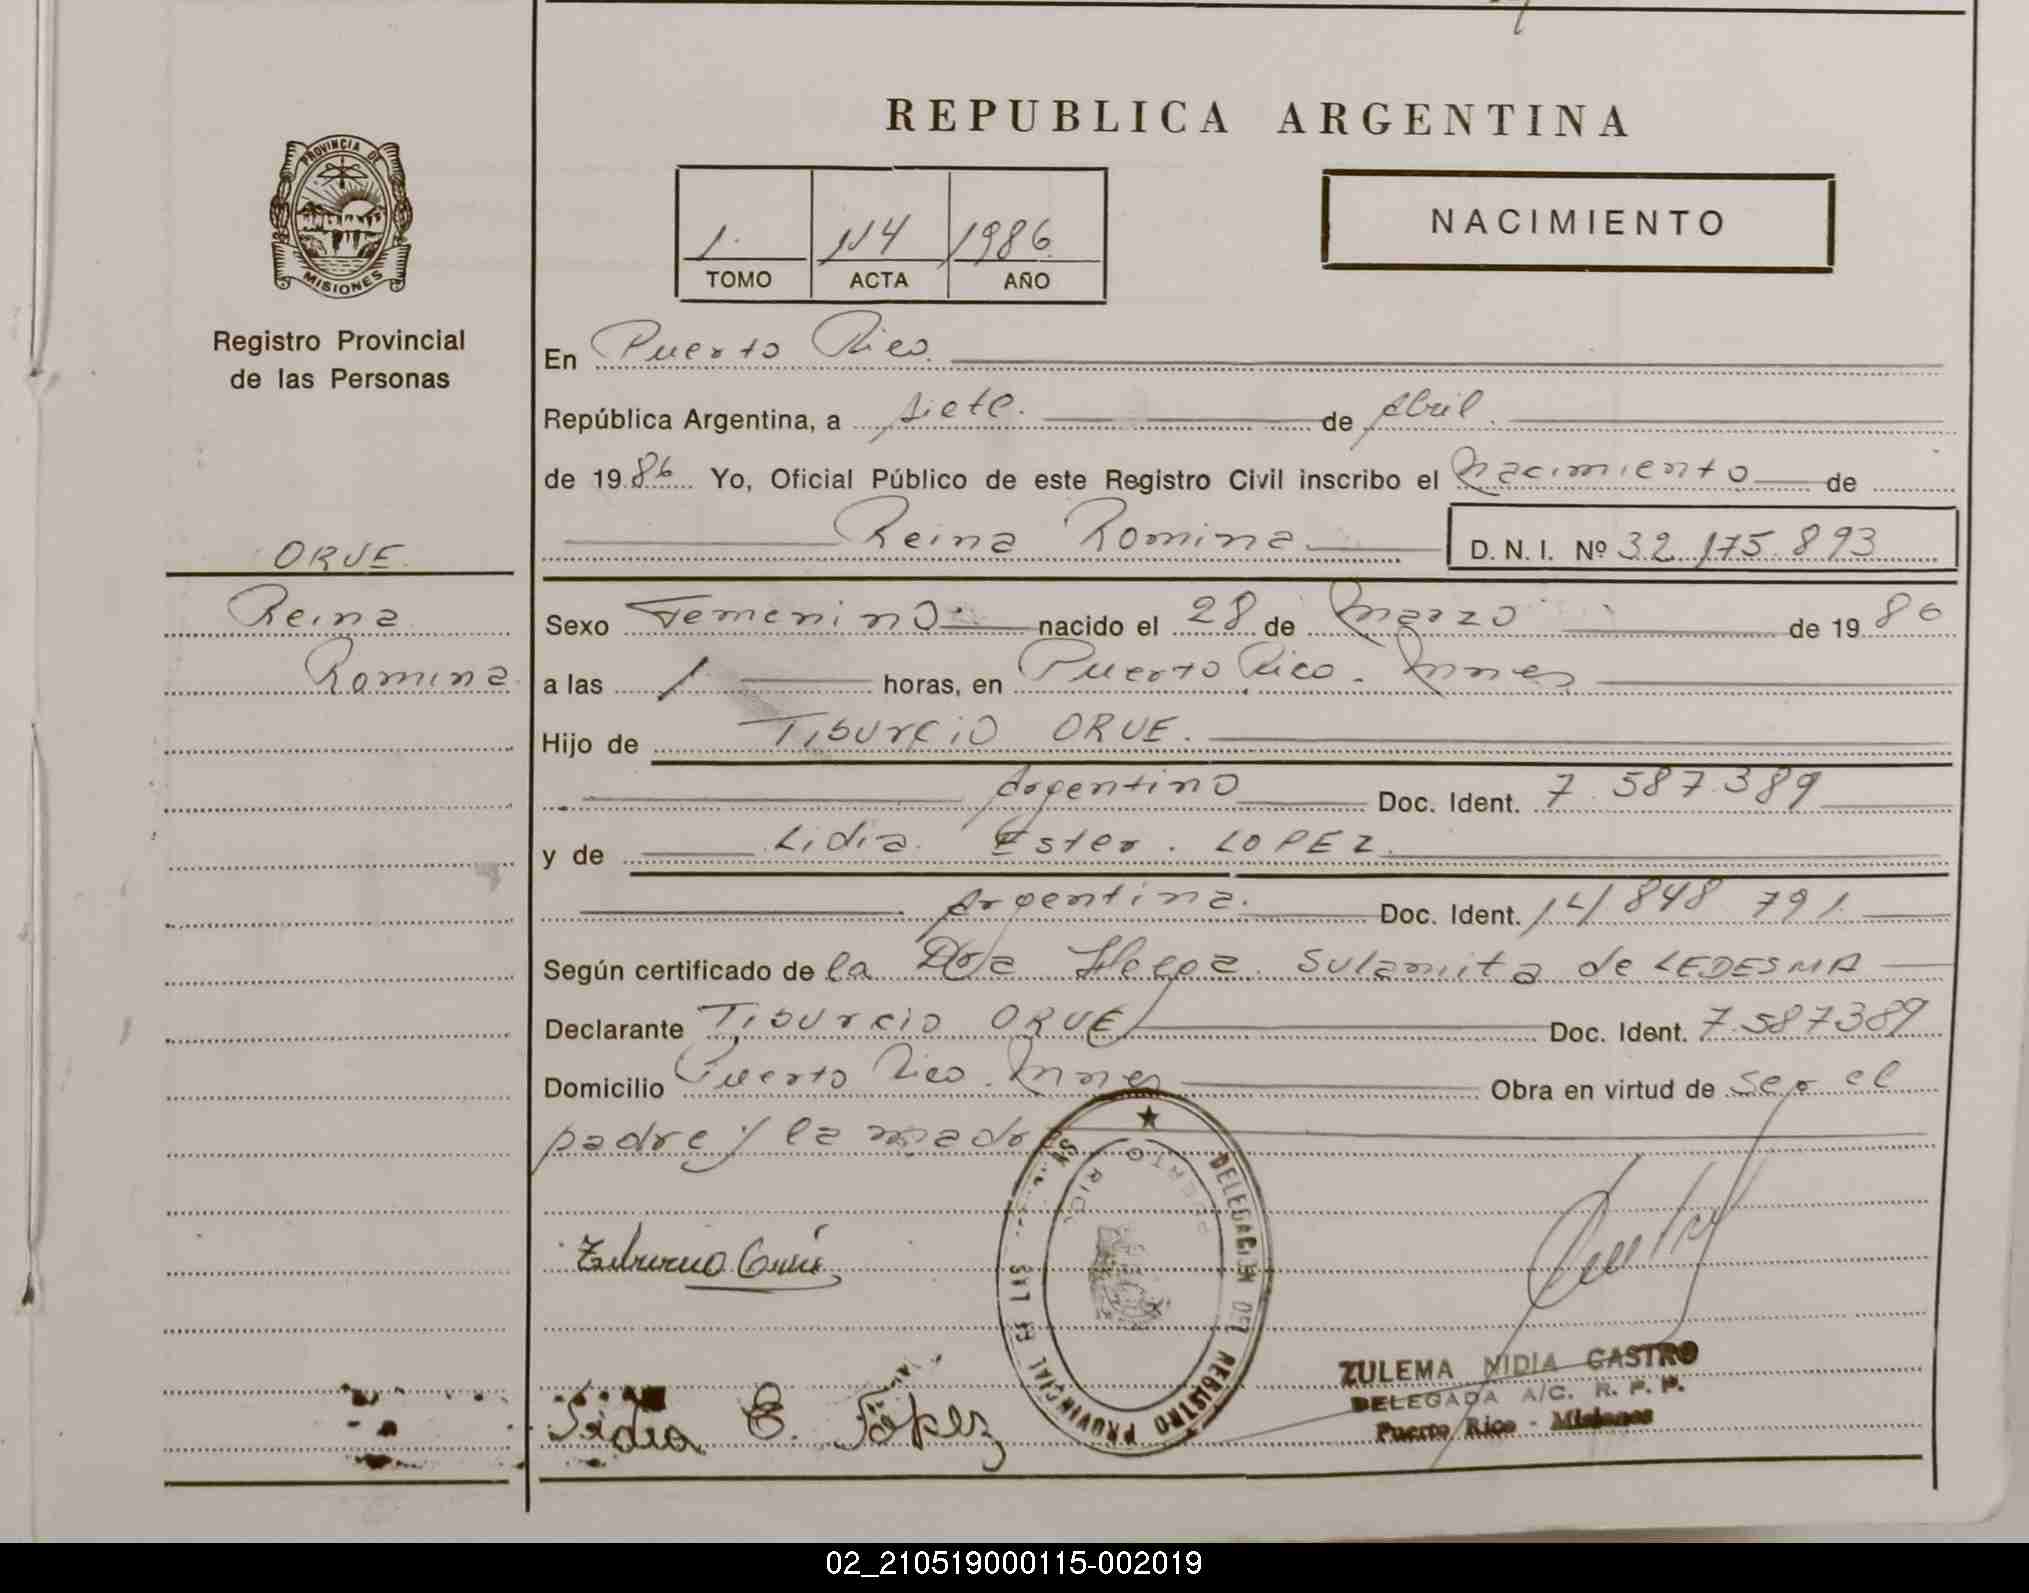 REPUBLICA ARGENTINA
PROVINCIA DE
MISIONES
Registro Provincial
de las Personas
1. 114 1986.
TOMO ACTA AÑO
NACIMIENTO
En Puerto Rico.
República Argentina, a siete. de Abril.
de 1986 Yo, Oficial Público de este Registro Civil inscribo el Nacimiento de
Reina Romina D. N. I. Nº 32.175.893
ORUE.
Reina
Romina
Sexo Femenino. nacido el 28 de Marzo de 1986
a las 1 horas, en Puerto Rico. Mnes
Hijo de Tiburcio ORUE.
Argentino Doc. Ident. 7.587.389
y de Lidia Ester. LOPEZ.
Argentina. Doc. Ident. 14.848 791
Según certificado de la Dra Sulamita de LEDESMA
Declarante Tiburcio ORUE Doc. Ident. 7.587389
Domicilio Puerto Rico. Mnes Obra en virtud de ser el
padre y la madre
DELEGACION DEL REGISTRO PROVINCIAL DE LAS
PUERTO RICO
Tiburcio Orué
Lidia E. López
ZULEMA NIDIA CASTRO
DELEGADA A/C. R. P. P.
Puerto Rico - Misiones
02_210519000115-002019